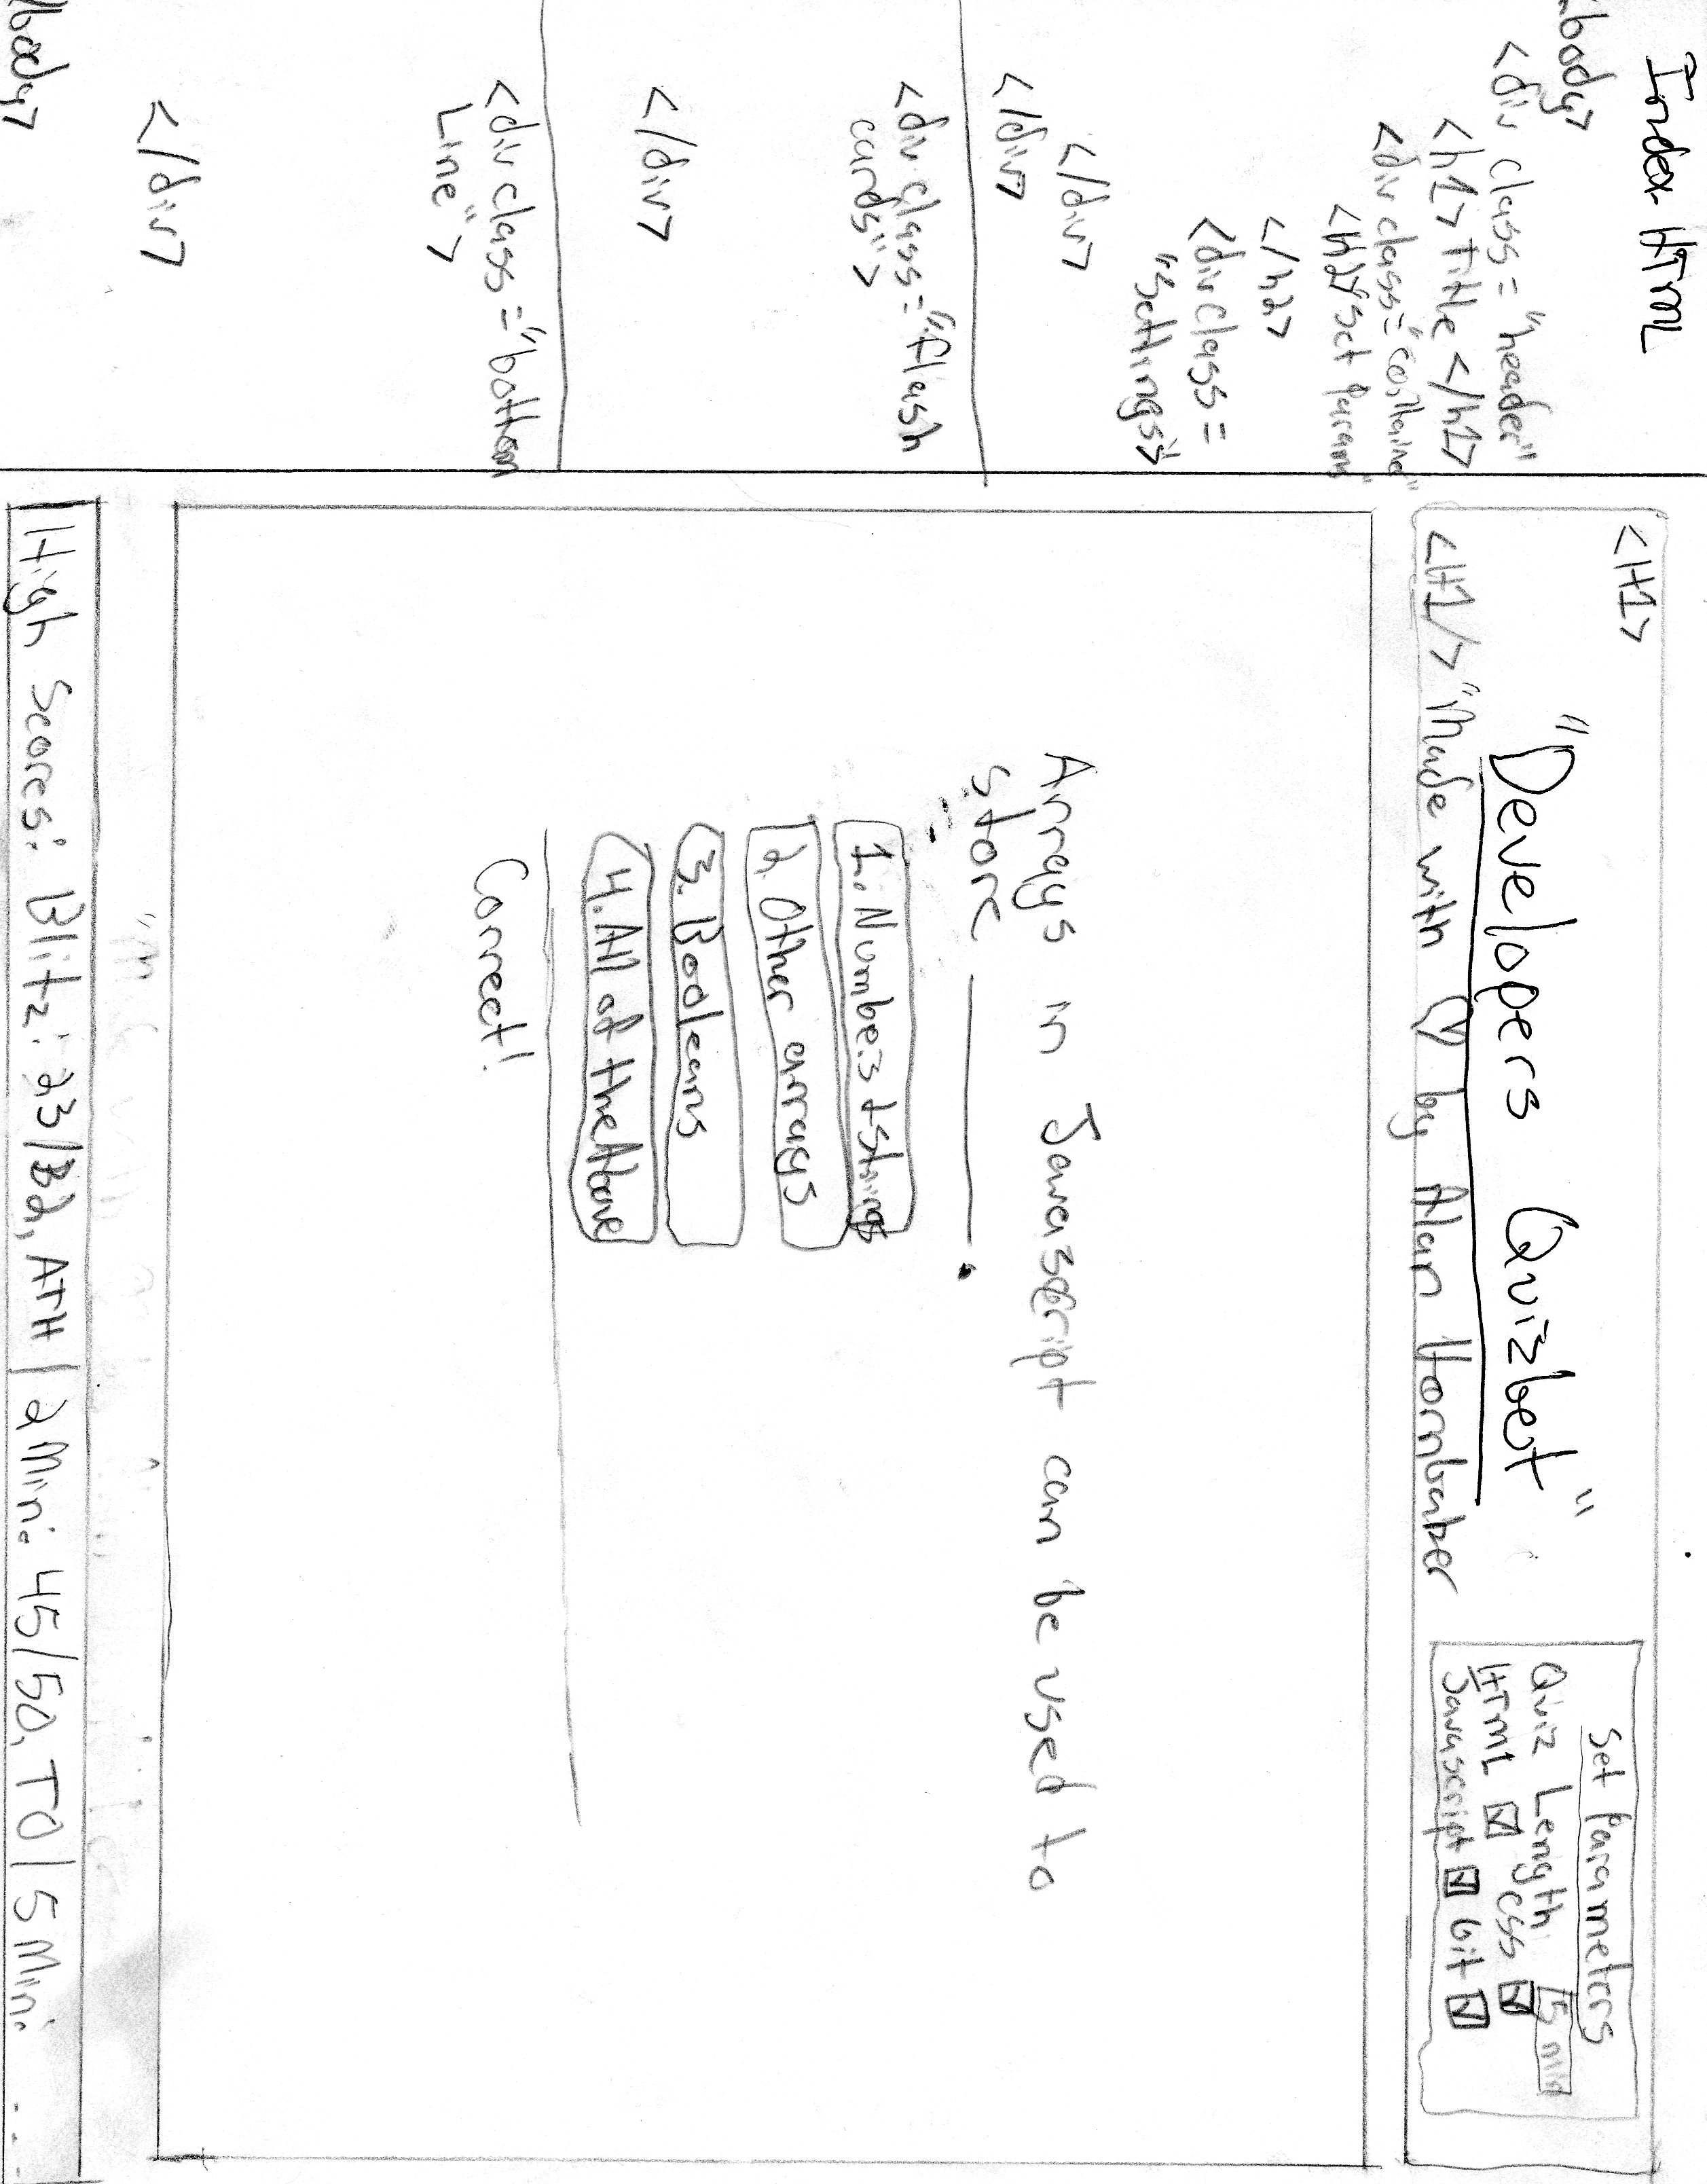 Index HTML
<body>
<div class="header"
<h1> Title </h1>
<div class="container"
<h2>"Set Params"
</h2>
<div class=
"Settings">
</div>
</div>
<div class="flash
cards">
</div>
<div class="bottom
Line">
</div>
/body>
<H1>
"Developers Quizbot"
<H1/> "Made with ♡ by Alan Hornbaker
Set Parameters
Quiz Length 5 min
HTML ☑ CSS ☑
Javascript ☑ Git ☑
Arrays in Javascript can be used to
store ______.
1. Numbers & Strings
2. Other arrays
3. Booleans
4. All of the Above
Correct!
High Scores: Blitz: 23/32, ATH | 2 Min: 45/50, TO | 5 Min: ...